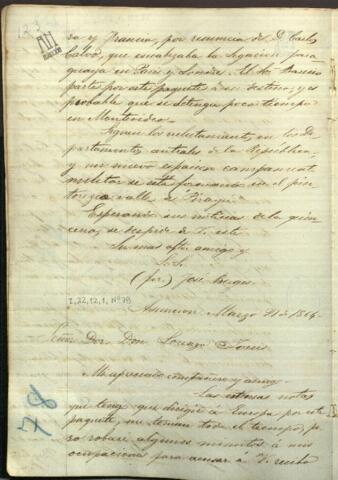 123
ra y Francia, por renuncia de D. Carlos
Calvo, que encabezaba la legacion para
guaya en Paris y Londres. El Sr. Bareiro
parte por este paquete a su destino, y es
probable que se detenga poco tiempo
en Montevideo.
Siguen los reclutamientos en los De-
partamentos centrales de la República,
y un nuevo campament
militar se está formando en el pin-
toresco valle de Pirayú.
Esperando sus noticias de la quin
cena, se despide de Vd. este
Su mas afto amigo y
S.S.
(for.) José Berges
I,22,12,1, Nº 78
Asuncion Marzo 21 de 1864.
Señor Dor. Don Lorenzo Torres
Mi apreciado compañero y amigo
Las estensas notas
que tengo que dirigir á Europa por este
paquete, me toman todo el tiempo, pe
ro robaré algunos minutos á mis
ocupaciones para acusar á V. recibo
78